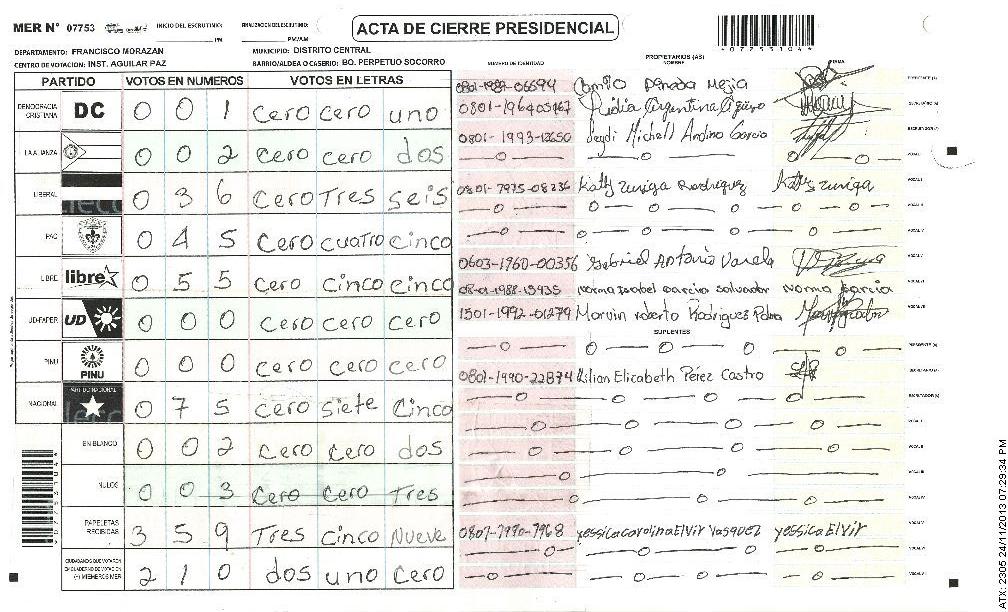 MER N° 07753 INICIO DEL ESCRUTINIO: PM FINALIZACION DEL ESCRUTINIO: PM/AM ACTA DE CIERRE PRESIDENCIAL
DEPARTAMENTO: FRANCISCO MORAZAN MUNICIPIO: DISTRITO CENTRAL
CENTRO DE VOTACION: INST. AGUILAR PAZ BARRIO/ALDEA O CASERIO: BO. PERPETUO SOCORRO
NUMERO DE IDENTIDAD PROPIETARIOS (AS) NOMBRE FIRMA
PARTIDO VOTOS EN NUMEROS VOTOS EN LETRAS
DEMOCRACIA CRISTIANA DC 0 0 1 Cero cero uno
LA ALIANZA 0 0 2 cero cero dos
LIBERAL 0 3 6 Cero Tres seis
PAC 0 4 5 Cero cuatro cinco
LIBRE libre 0 5 5 Cero Cinco cinco
UD-FAPER UD 0 0 0 Cero Cero cero
PINU PINU 0 0 0 Cero cero cero
NACIONAL 0 7 5 Cero siete Cinco
EN BLANCO 0 0 2 Cero Cero dos
NULOS 0 0 3 Cero Cero Tres
PAPELETAS RECIBIDAS 3 5 9 Tres Cinco Nueve
CIUDADANOS QUE VOTARON EN CUADERNO DE VOTACION (+) MIEMBROS MER 2 1 0 dos uno Cero
Mejia
0801-1993-12650 Michell Andino Garcia
Katty Zuniga Rodriguez Katty Zuniga
0603-1960-00356 Gabriel Antonio Varela
08-01-1988-15935 Norma Isabel Garcia Salvador Norma Garcia
1501-1992-01279 Marvin roberto Rodriguez
SUPLENTES
0801-1990-22874 Lilian Elicabeth Pérez Castro
yessica carolina Elvir Vasquez yessica Elvir
ATX: 2305 24/11/2013 07:29:34 PM